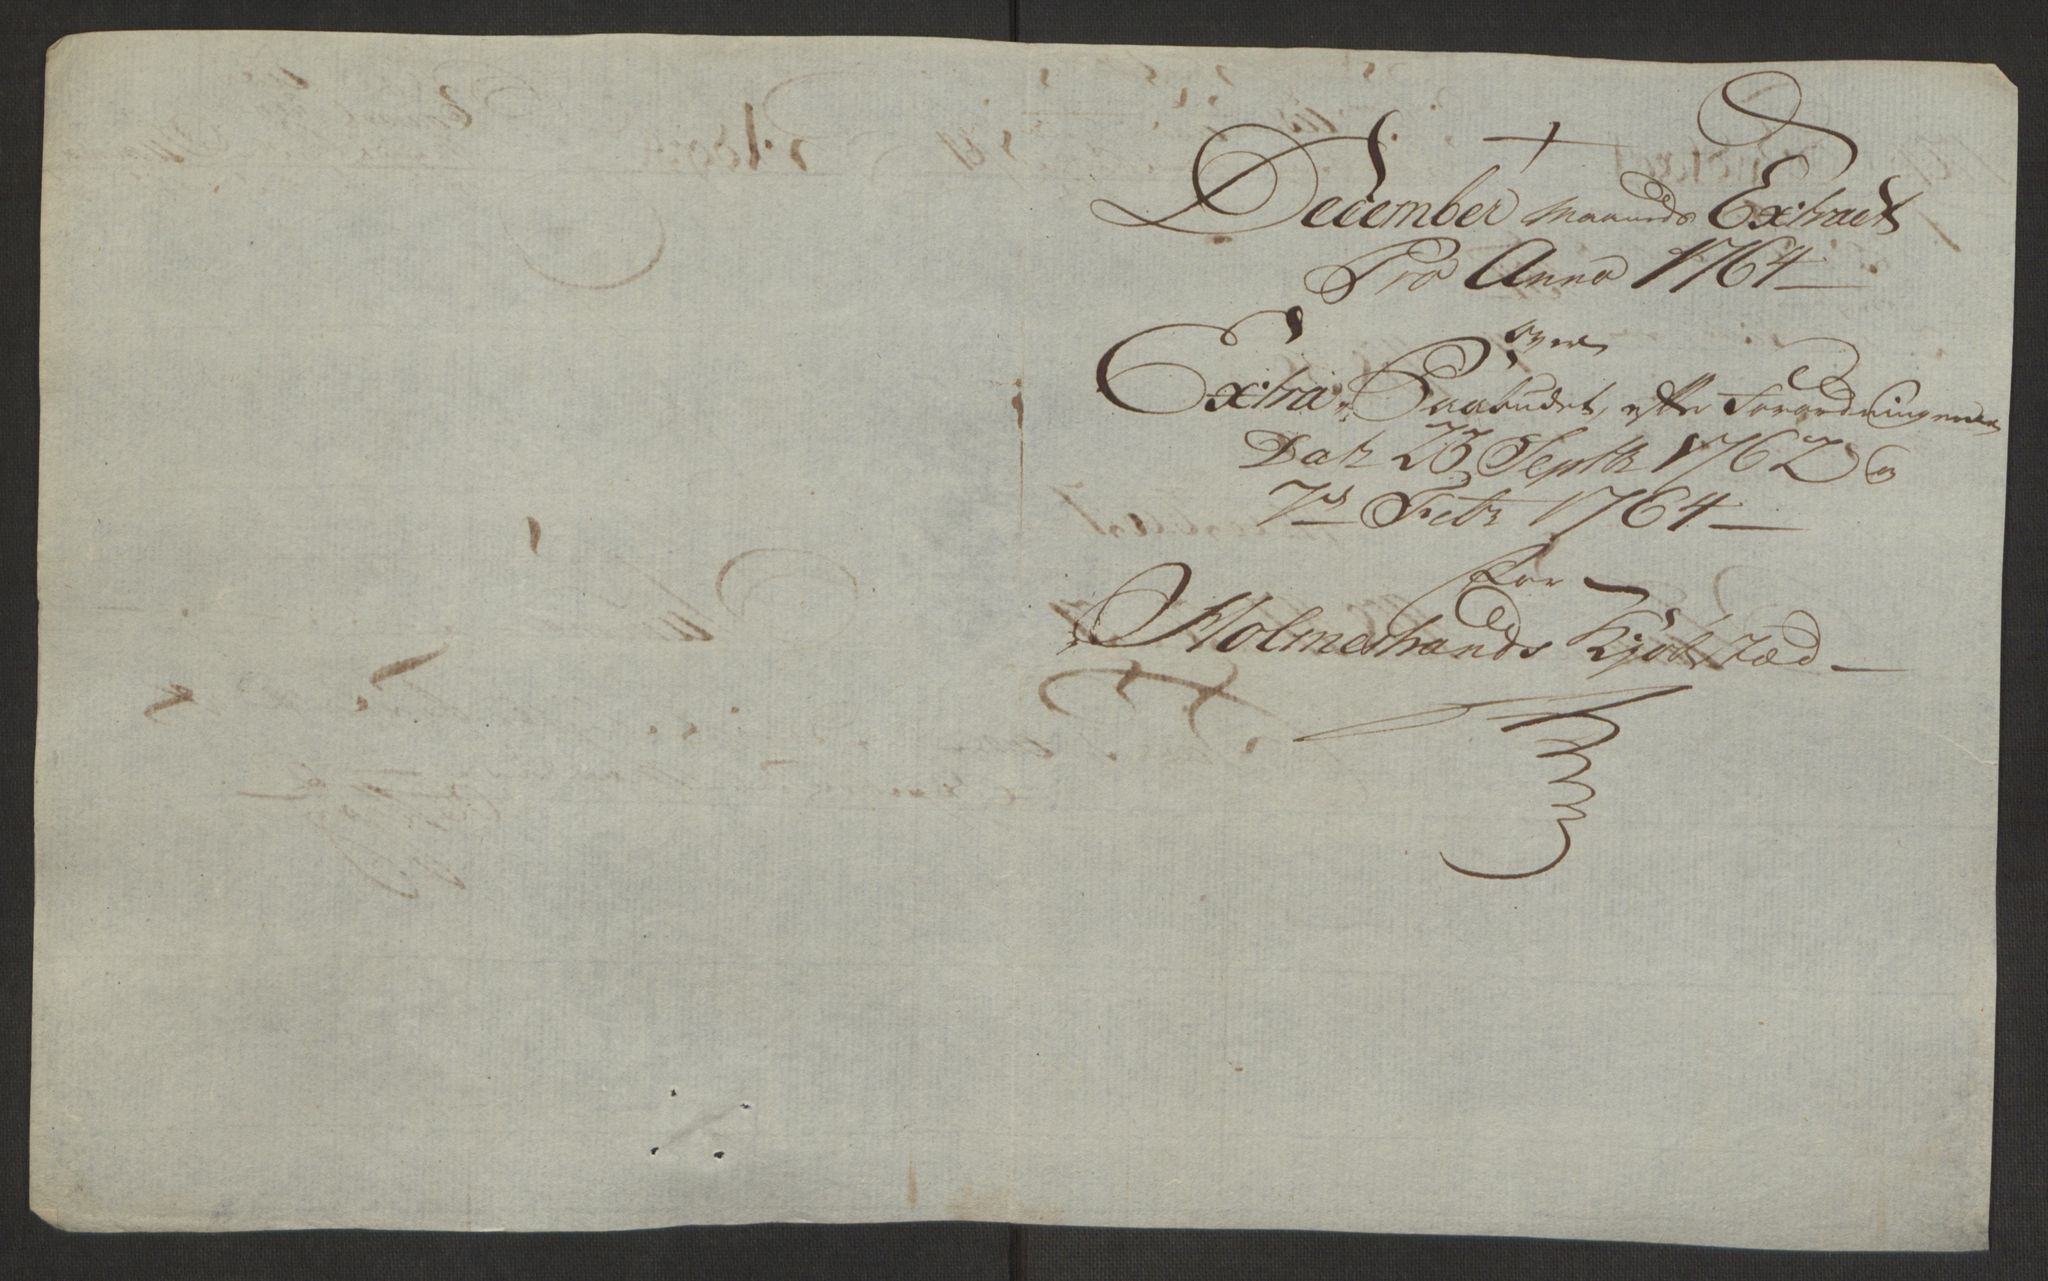 December Maaneds Extract
Pro Anno 1764
over
Extra Paabudet, efter Forordningerne
Datr 23 Septbr 1762 og
7de Febr 1764
for
Holmestrands Kjøbstæd